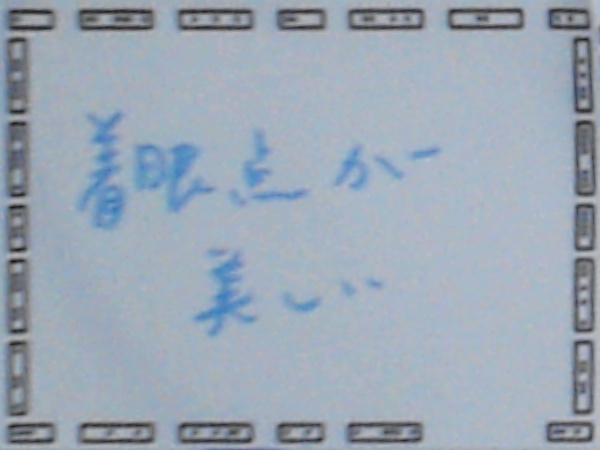 着眼点が
美しい